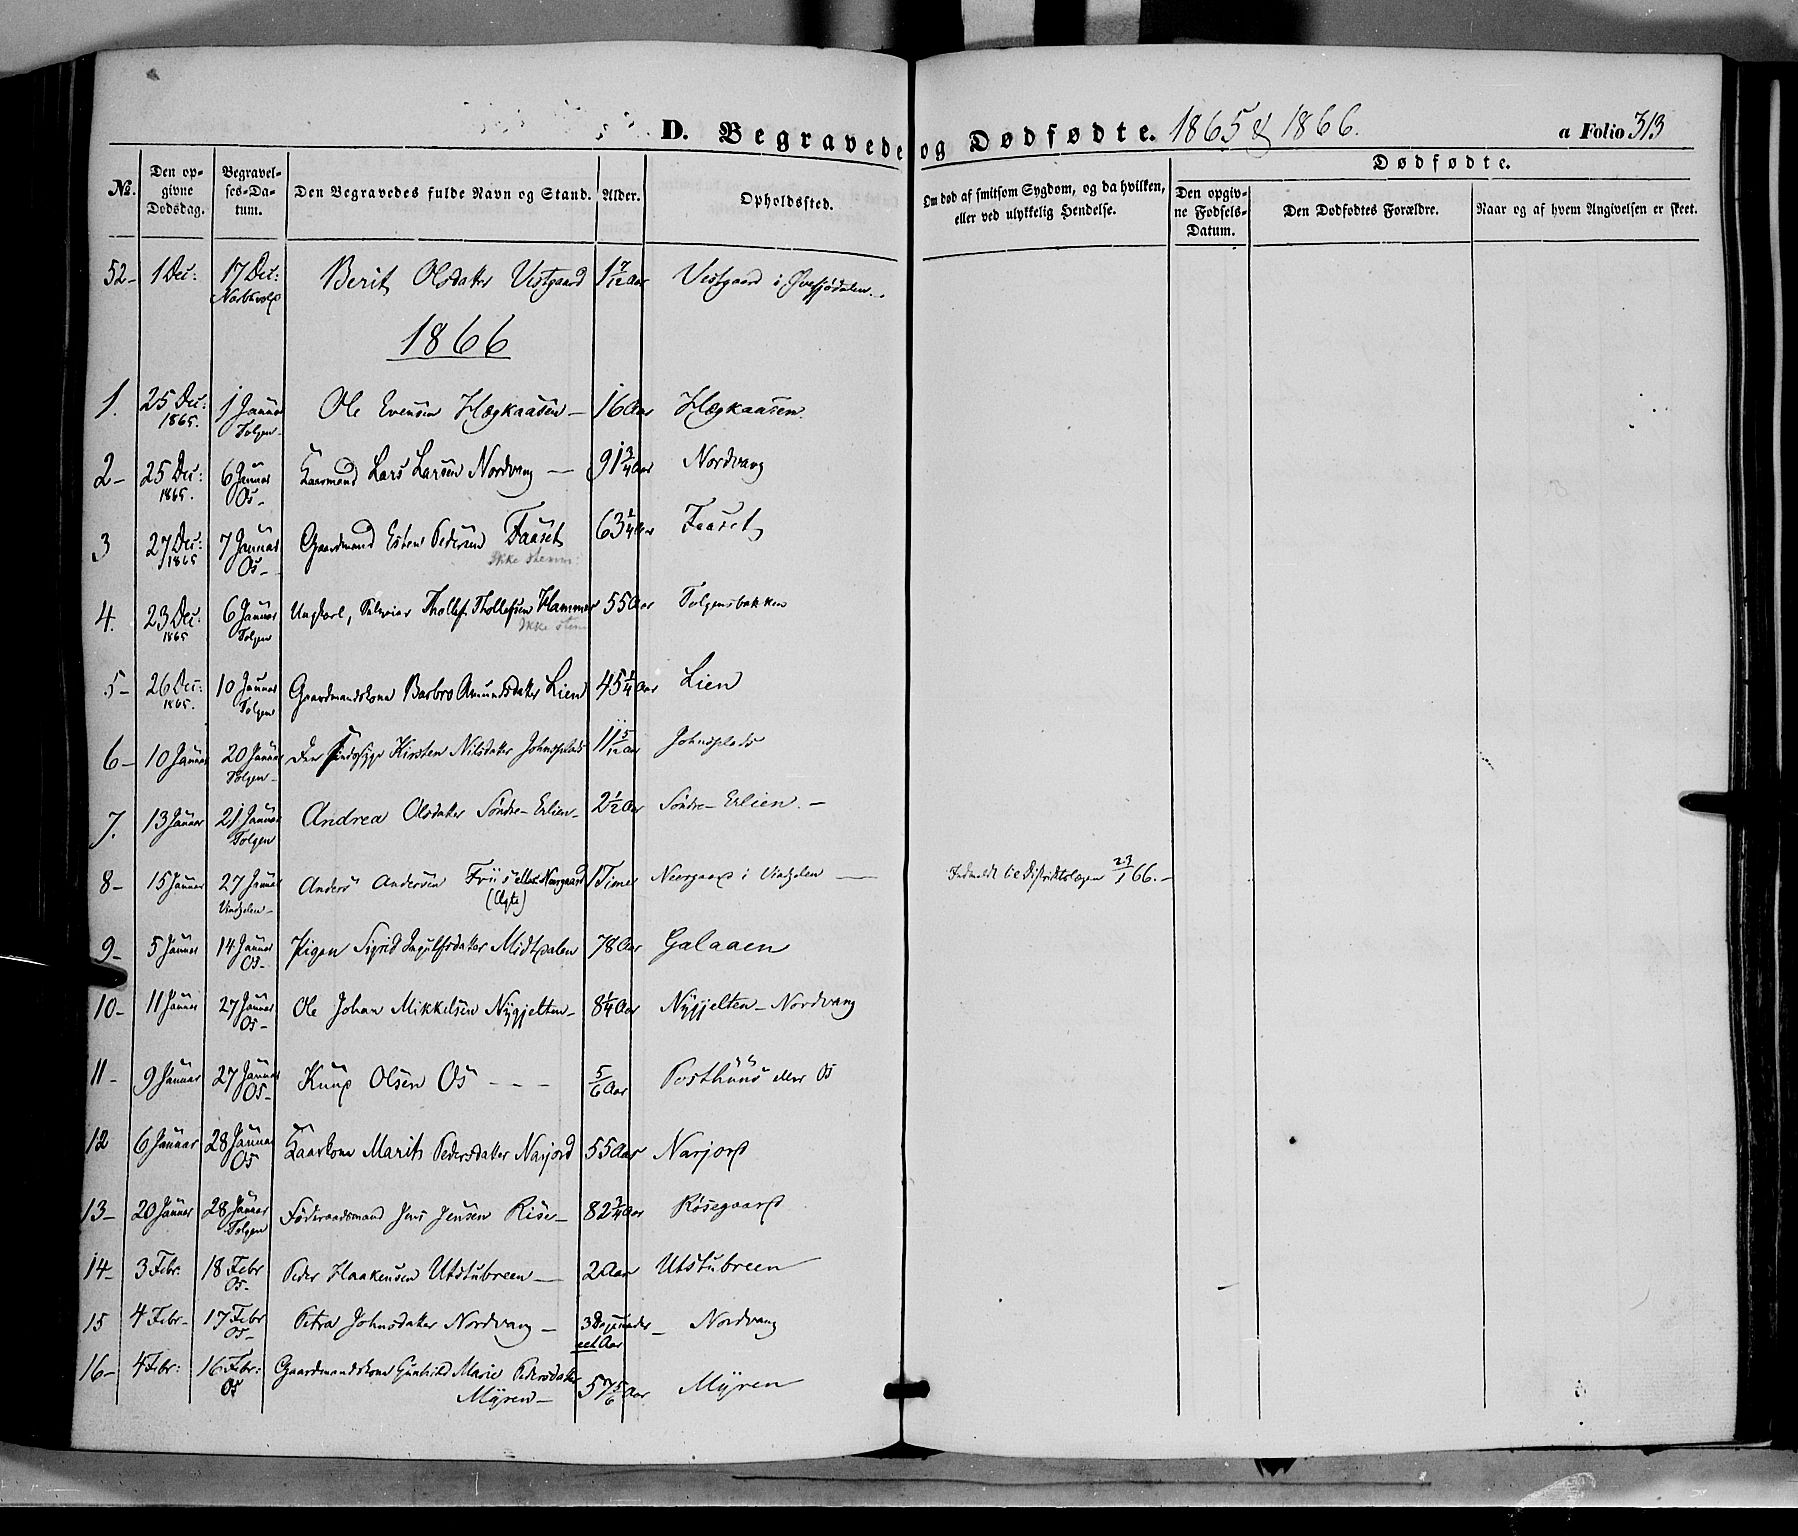 D. Begravede og Dødfødte. 1865 & 1866. a Folio 313
No. Den op-givne Dødsdag. Begravel-ses-Da-tum. Den Begravedes fulde Navn og Stand. Alder. Opholdssted. Om død af smitsom Sygdom, og da hvilken, eller ved ulykkelig Hendelse. Dødfødte. Den opgiv-ne Fødsels-Datum. Den Dødfødtes Forældre. Naar og af hvem Angivelsen er skeet.
52- 1 Dec: 17 Dec: Berit Olsdatter Vestgaard 1 7/12 Aar Vestgaard i
1866
1. 25 Dec: 1865. 1 Januar Tolgen- Ole Evensen Hægkaasen- 16 Aar Hægkaasen.
2- 25 Dec: 1865. 6 Januar Os- Kaarmand Lars Larsen Nordvang - 91 3/4 Aar Nordvang
3 27 Dec: 1865 7 Januar Os- Gaardmand Esten Pedersen Faaset 63 1/4 Aar Faaset
Ikke stemm:
4. 23 Dec: 1865 6 Januar Tolgen Ungkarl, Thollef Thollefsen Hammer 55 Aar Tolgensbakken
Ikke stem
5- 26 Dec: 1865. 10 Januar Tolgen Gaardmandskone Barbro Amundsdatter Lien 45 1/4 Aar Lien
6- 10 Januar 20 Januar Tolgen- Den sindssyge Kirsten Nilsdatter Johnsplads 11 5/12 Aar Johnsplads
7. 13 Januar 21 Januar Tolgen Andrea Olsdatter Søndre-Erlien- 2 1/2 Aar Søndre-Erlien.-
8- 15 Januar 27 Januar Vingelen- Anders Andersen Friis eller Neergaard (Ægte) 1 Time Neergaard i Vingelen - Indmeldt til Distriktslægen 23/1 66.-
9- 5 Januar 14 Januar Os- Pigen Sigrid Ingulfsdatter Midtdalen 78 Aar Galaaen
10- 11 Januar 27 Januar Os- Ole Johan Mikkelsen Nygjelten- 8 1/4 Aar Nygjelten-Nordvang
11- 9 Januar 27 Januar Os- Knud Olsen Os - - - 5/6 Aar Posthuus eller Os
12 6 Januar 28 Januar Os Kaarkone Marith Pedersdatter Narjord 55 Aar Narjord
13- 20 Januar 28 Januar Tolgen Føderaadsmand Jens Jensen Riise- 82 3/4 Aar Røsegaard
14- 3 Febr: 18 Febr Os- Peder Haakensen Utstubreen- 2 Aar Utstubreen
15 4 Febr- 17 Febr Os- Petra Johnsdatter Nordvang - 3 Aar Nordvang
16- 4 Febr: 16 Febr: Os Gaardmandskone Gunhild Marie Pedersdatter Myren- 57 5/6 Aar Myren